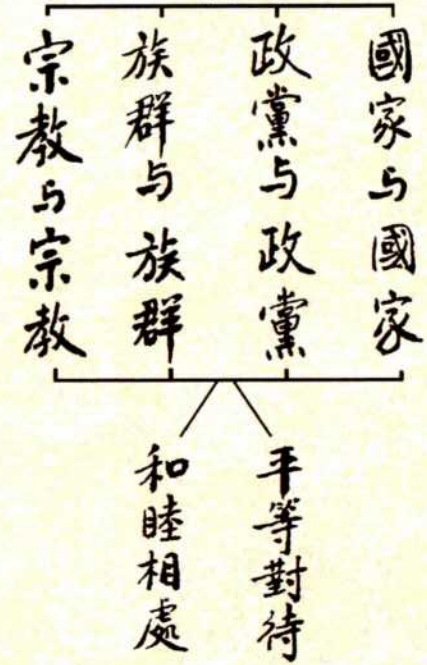 國家与國家
政黨与政黨
族群与族群
宗教与宗教
平等對待
和睦相處